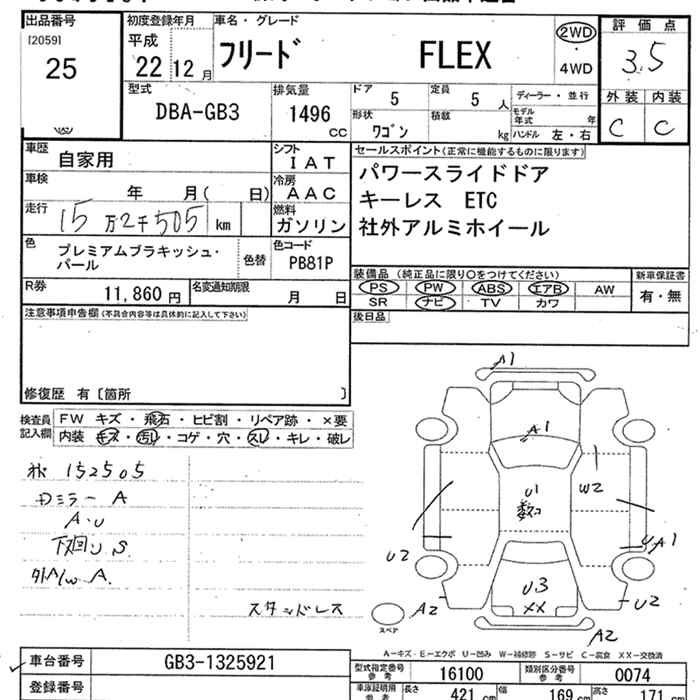 出品番号
[2059]
25
初度登録年月
平成
22 12月
車名・グレード
フリード FLEX
2WD
4WD
評価点
3.5
外装 内装
C C
型式
DBA-GB3
排気量
1496 CC
ドア
5
定員
5 人
形状
ワゴン
積載
kg
ディーラー・並行
モデル年式 年
ハンドル 左・右
車歴
自家用
シフト
IAT
車検
年 月( 日)
冷房
AAC
走行
15万2千505 km
燃料
ガソリン
色
プレミアムブラキッシュ・パール
色替
色コード
PB81P
R券
11,860 円
名変通知期限
月 日
セールスポイント(正常に機能するものに限ります)
パワースライドドア
キーレス ETC
社外アルミホイール
装備品 (純正品に限り○をつけてください)
PS PW ABS エアB AW
SR ナビ TV カワ
新車保証書
有・無
後日品
注意事項申告欄(不具合内容等は具体的に記入して下さい)
修復歴 有〔箇所 〕
検査員記入欄
FW キズ・飛石・ヒビ割・リペア跡・×要
内装 キズ・汚レ・コゲ・穴・スレ・キレ・破レ
152505
ミラー A
A・U
下廻り S
外A/W A
スタッドレス
A1
A1
U1
W2
U2
UA1
U3
XX
A2
U2
A2
スペア
A-キズ・E-エクボ U-凹み W-補修跡 S-サビ C-腐食 XX-交換済
車台番号
GB3-1325921
登録番号
型式指定番号 参考
16100
類別区分番号 参考
0074
車庫証明用 参考
長さ 421 cm 幅 169 cm 高さ 171 cm